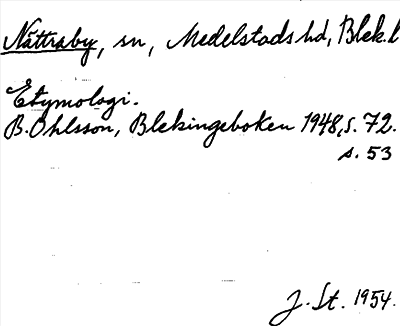 Nättraby, sn, Medelstads hd, Blek. l
Etymologi.
B. Ohlsson, Blekingeboken 1948, s. 72.
s. 53
J. St. 1954.